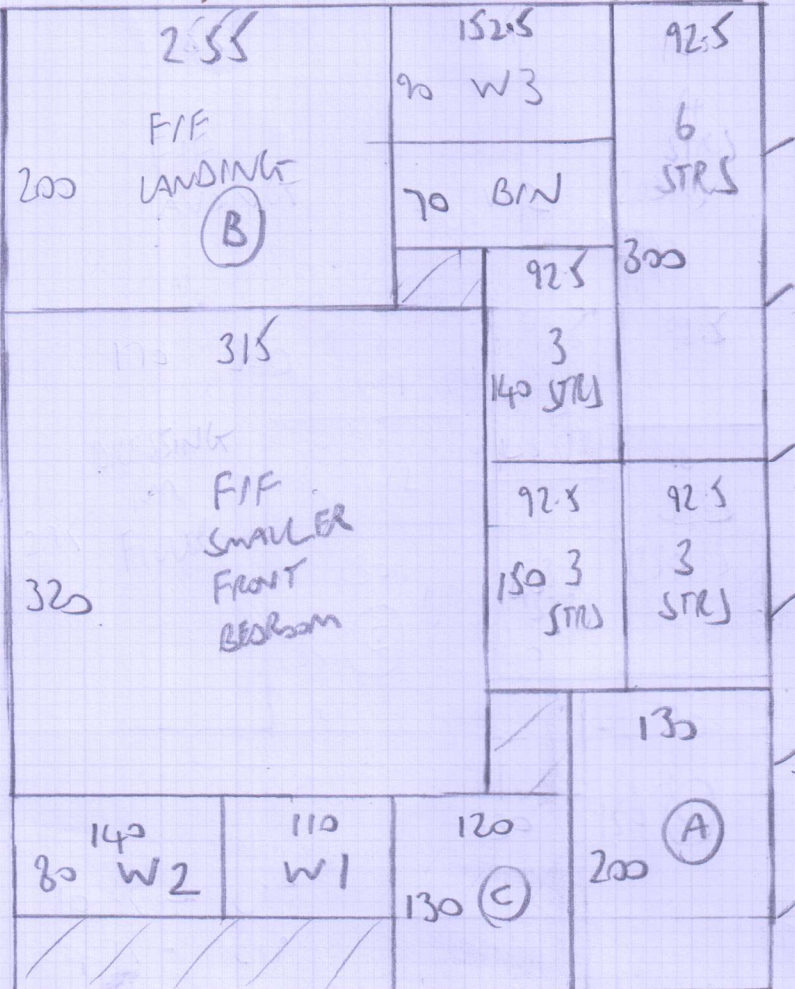 2.55
F/F
LANDING
200
B
152.5
90 W3
70 BIN
92.5
6
STRS
300
92.5
3
140 STRS
315
F/F
SMALLER
FRONT
BEDROOM
320
92.5
150 3
STRS
92.5
3
STRS
130
A
200
140
80 W2
110
W1
120
130 C